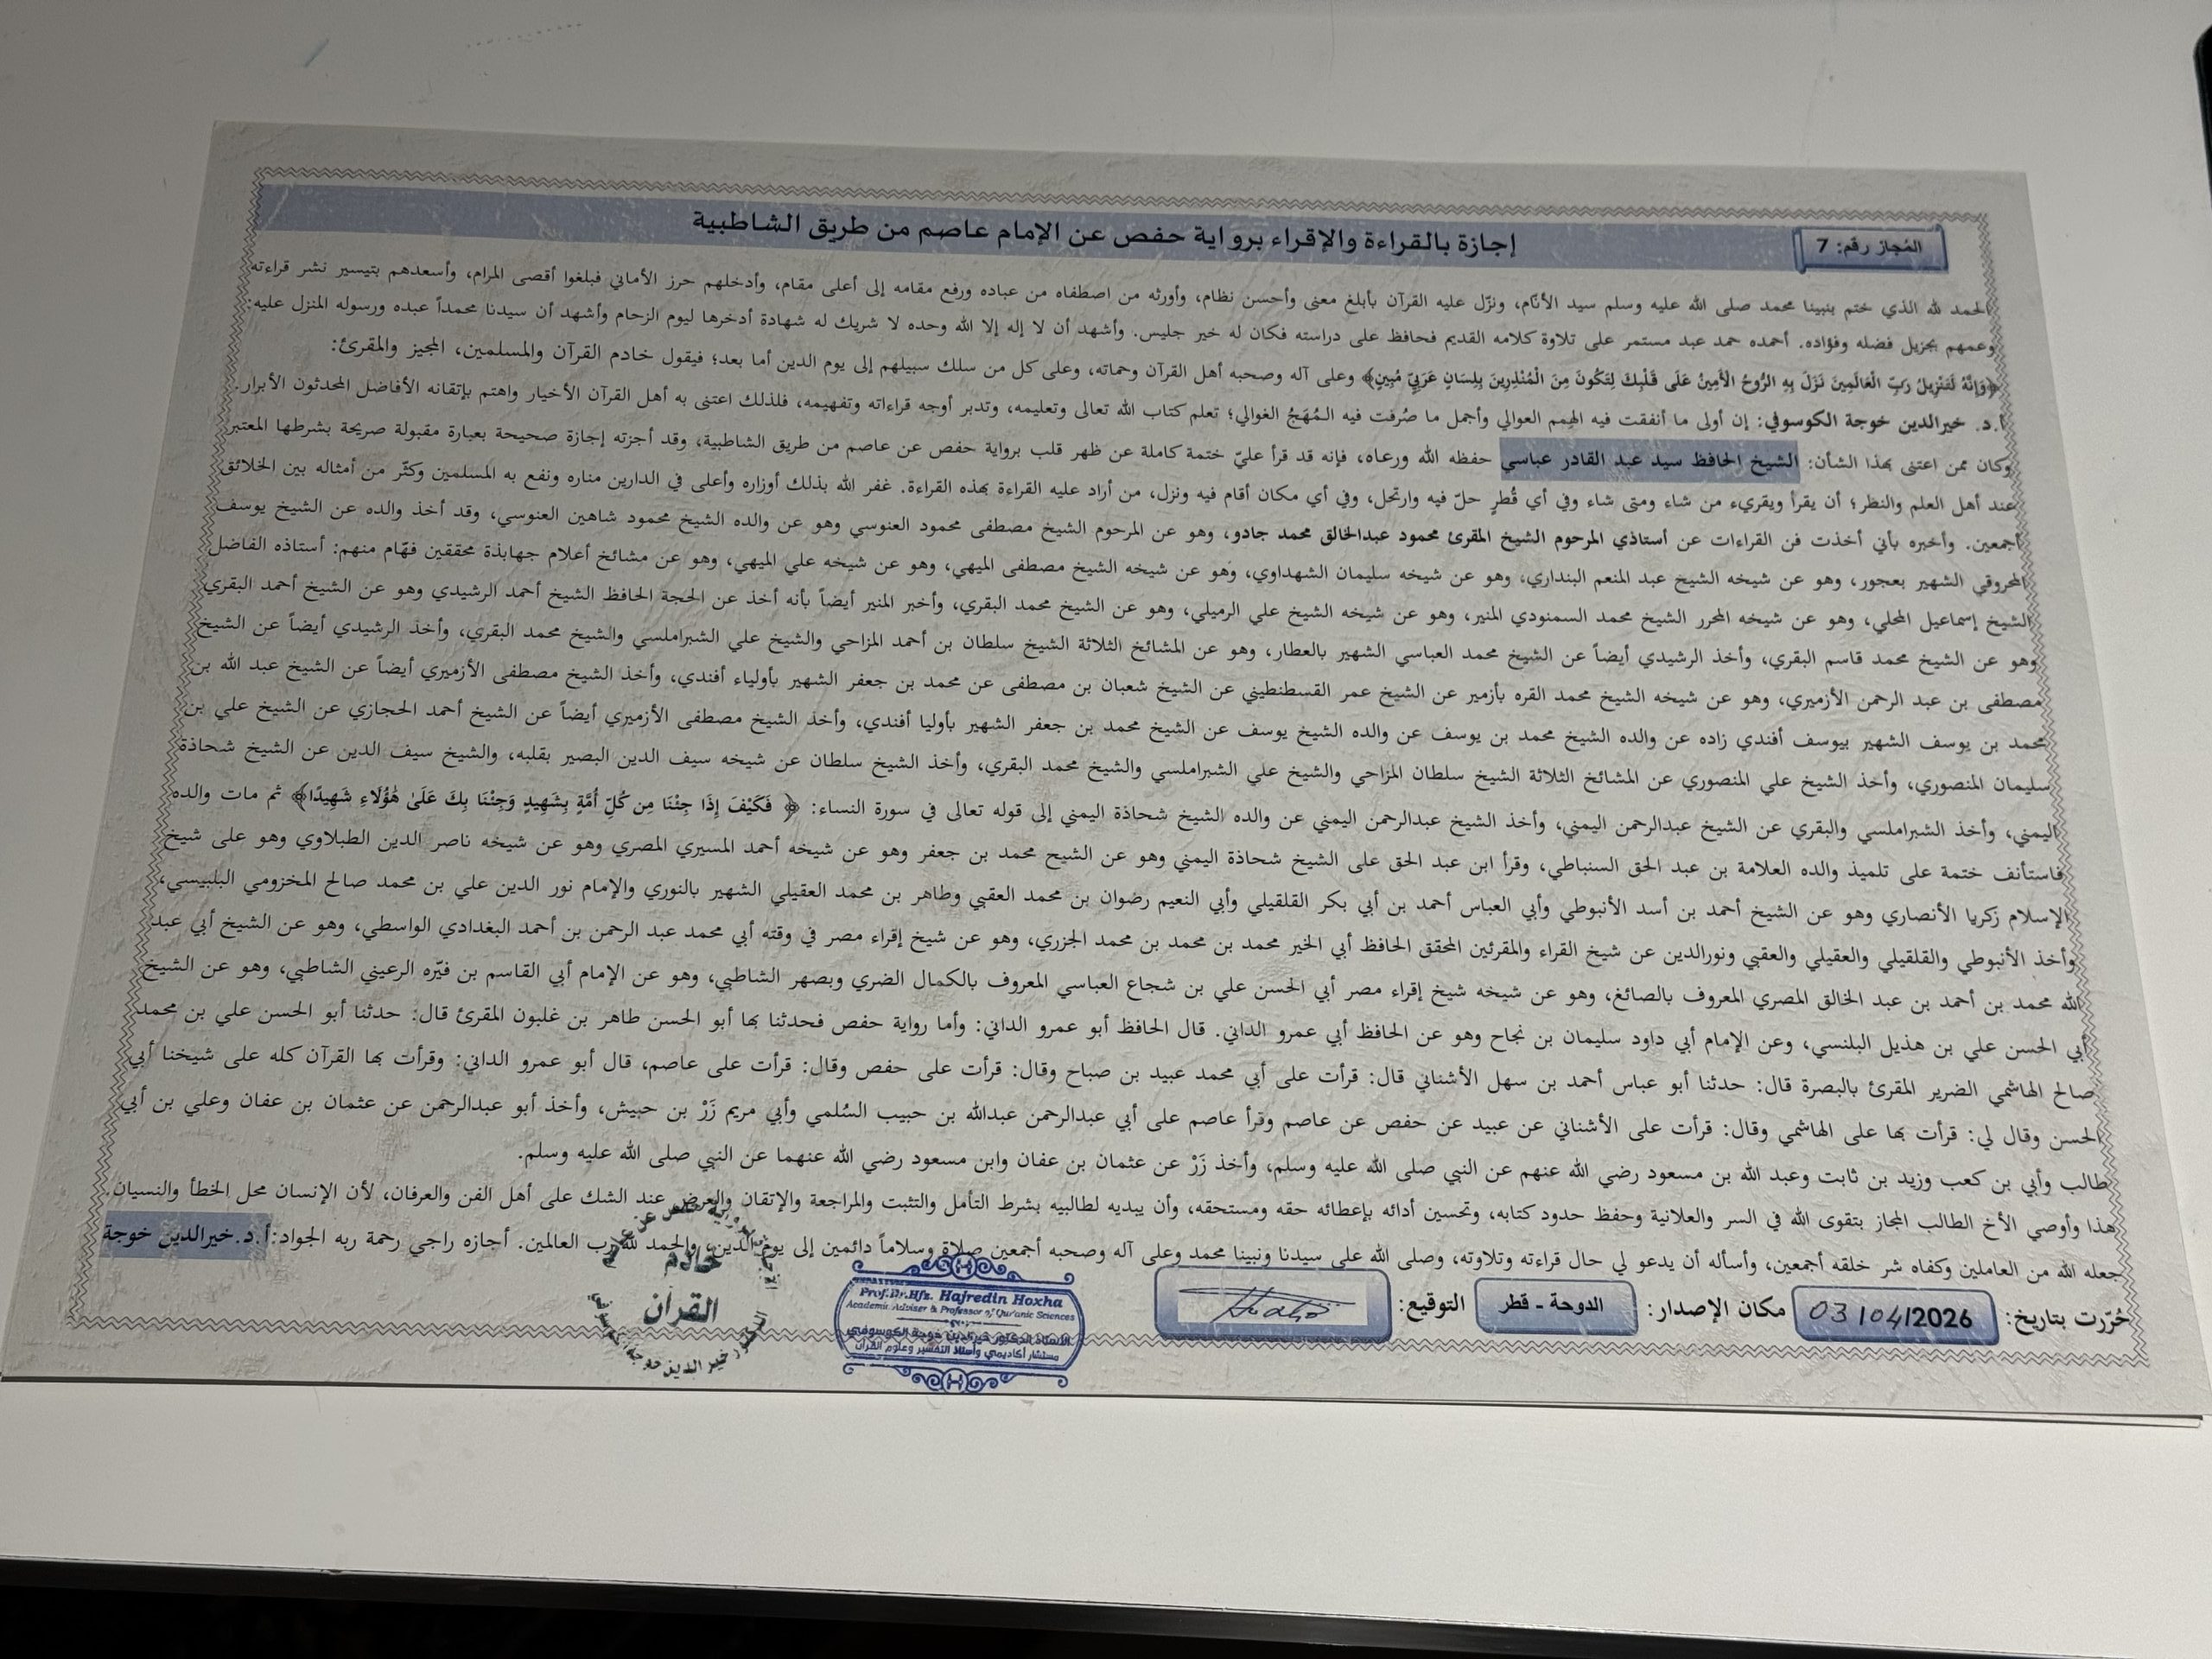 المُجاز رقم: 7
إجازة بالقراءة والإقراء برواية حفص عن الإمام عاصم من طريق الشاطبية
الحمد لله الذي ختم بنبينا محمد صلى الله عليه وسلم سيد الأنَام، ونزّل عليه القرآن بأبلغ معنى وأحسن نظام، وأورثه من اصطفاه من عباده ورفع مقامه إلى أعلى مقام، وأدخلهم حرز الأماني فبلغوا أقصى المرام، وأسعدهم بتيسير نشر قراءته
وعمهم بجزيل فضله وفؤاده. أحمده حمد عبد مستمر على تلاوة كلامه القديم فحافظ على دراسته فكان له خير جليس. وأشهد أن لا إله إلا الله وحده لا شريك له شهادة أدخرها ليوم الزحام وأشهد أن سيدنا محمداً عبده ورسوله المنزل عليه:
﴿وَإِنَّهُ لَتَنْزِيلُ رَبِّ الْعَالَمِينَ نَزَلَ بِهِ الرُّوحُ الْأَمِينُ عَلَى قَلْبِكَ لِتَكُونَ مِنَ الْمُنْذِرِينَ بِلِسَانٍ عَرَبِيٍّ مُبِينٍ﴾ وعلى آله وصحبه أهل القرآن وحماته، وعلى كل من سلك سبيلهم إلى يوم الدين أما بعد؛ فيقول خادم القرآن والمسلمين، المجيز والمقرئ:
أ.د. خيرالدين خوجة الكوسوفي: إن أولى ما أنفقت فيه الهِمم العوالي وأجمل ما صُرفت فيه المُهَجُ الغوالي؛ تعلم كتاب الله تعالى وتعليمه، وتدبر أوجه قراءاته وتفهيمه، فلذلك اعتنى به أهل القرآن الأخيار واهتم بإتقانه الأفاضل المحدثون الأبرار.
وكان ممن اعتنى بهذا الشأن: الشيخ الحافظ سيد عبد القادر عباسي حفظه الله ورعاه، فإنه قد قرأ عليّ ختمة كاملة عن ظهر قلب برواية حفص عن عاصم من طريق الشاطبية، وقد أجزته إجازة صحيحة بعبارة مقبولة صريحة بشرطها المعتبر
عند أهل العلم والنظر؛ أن يقرأ ويقريء من شاء ومتى شاء وفي أي قُطرٍ حلّ فيه وارتحل، وفي أي مكان أقام فيه ونزل، من أراد عليه القراءة بهذه القراءة. غفر الله بذلك أوزاره وأعلى في الدارين مناره ونفع به المسلمين وكثّر من أمثاله بين الخلائق
أجمعين. وأخبره بأني أخذت فن القراءات عن أستاذي المرحوم الشيخ المقرئ محمود عبدالخالق محمد جادو، وهو عن المرحوم الشيخ مصطفى محمود العنوسي وهو عن والده الشيخ محمود شاهين العنوسي، وقد أخذ والده عن الشيخ يوسف
المحروقي الشهير بعجور، وهو عن شيخه الشيخ عبد المنعم البنداري، وهو عن شيخه سليمان الشهداوي، وهو عن شيخه الشيخ مصطفى الميهي، وهو عن شيخه علي الميهي، وهو عن مشائخ أعلام جهابذة محققين فهّام منهم: أستاذه الفاضل
الشيخ إسماعيل المحلي، وهو عن شيخه المحرر الشيخ محمد السمنودي المنير، وهو عن شيخه الشيخ علي الرميلي، وهو عن الشيخ محمد البقري، وأخبر المنير أيضاً بأنه أخذ عن الحجة الحافظ الشيخ أحمد الرشيدي وهو عن الشيخ أحمد البقري
وهو عن الشيخ محمد قاسم البقري، وأخذ الرشيدي أيضاً عن الشيخ محمد العباسي الشهير بالعطار، وهو عن المشائخ الثلاثة الشيخ سلطان بن أحمد المزاحي والشيخ علي الشبراملسي والشيخ محمد البقري، وأخذ الرشيدي أيضاً عن الشيخ
مصطفى بن عبد الرحمن الأزميري، وهو عن شيخه الشيخ محمد القره بأزمير عن الشيخ عمر القسطنطيني عن الشيخ شعبان بن مصطفى عن محمد بن جعفر الشهير بأولياء أفندي، وأخذ الشيخ مصطفى الأزميري أيضاً عن الشيخ عبد الله بن
محمد بن يوسف الشهير بيوسف أفندي زاده عن والده الشيخ محمد بن يوسف عن والده الشيخ يوسف عن الشيخ محمد بن جعفر الشهير بأوليا أفندي، وأخذ الشيخ مصطفى الأزميري أيضاً عن الشيخ أحمد الحجازي عن الشيخ علي بن
سليمان المنصوري، وأخذ الشيخ علي المنصوري عن المشائخ الثلاثة الشيخ سلطان المزاحي والشيخ علي الشبراملسي والشيخ محمد البقري، وأخذ الشيخ سلطان عن شيخه سيف الدين البصير بقلبه، والشيخ سيف الدين عن الشيخ شحاذة
اليمني، وأخذ الشبراملسي والبقري عن الشيخ عبدالرحمن اليمني، وأخذ الشيخ عبدالرحمن اليمني عن والده الشيخ شحاذة اليمني إلى قوله تعالى في سورة النساء: ﴿ فَكَيْفَ إِذَا جِئْنَا مِن كُلِّ أُمَّةٍ بِشَهِيدٍ وَجِئْنَا بِكَ عَلَىٰ هَٰؤُلَاءِ شَهِيدًا﴾ ثم مات والده
فاستأنف ختمة على تلميذ والده العلامة بن عبد الحق السنباطي، وقرأ ابن عبد الحق على الشيخ شحاذة اليمني وهو عن الشيح محمد بن جعفر وهو عن شيخه أحمد المسيري المصري وهو عن شيخه ناصر الدين الطبلاوي وهو على شيخ
الإسلام زكريا الأنصاري وهو عن الشيخ أحمد بن أسد الأنبوطي وأبي العباس أحمد بن أبي بكر القلقيلي وأبي النعيم رضوان بن محمد العقبي وطاهر بن محمد العقيلي الشهير بالنوري والإمام نور الدين علي بن محمد صالح المخزومي البلبيسي،
وأخذ الأنبوطي والقلقيلي والعقيلي والعقبي ونورالدين عن شيخ القراء والمقرئين المحقق الحافظ أبي الخير محمد بن محمد بن محمد الجزري، وهو عن شيخ إقراء مصر في وقته أبي محمد عبد الرحمن بن أحمد البغدادي الواسطي، وهو عن الشيخ أبي عبد
الله محمد بن أحمد بن عبد الخالق المصري المعروف بالصائغ، وهو عن شيخه شيخ إقراء مصر أبي الحسن علي بن شجاع العباسي المعروف بالكمال الضري وبصهر الشاطبي، وهو عن الإمام أبي القاسم بن فيّره الرعيني الشاطبي، وهو عن الشيخ
أبي الحسن علي بن هذيل البلنسي، وعن الإمام أبي داود سليمان بن نجاح وهو عن الحافظ أبي عمرو الداني. قال الحافظ أبو عمرو الداني: وأما رواية حفص فحدثنا بها أبو الحسن طاهر بن غلبون المقرئ قال: حدثنا أبو الحسن علي بن محمد
صالح الهاشمي الضرير المقرئ بالبصرة قال: حدثنا أبو عباس أحمد بن سهل الأشناني قال: قرأت على أبي محمد عبيد بن صباح وقال: قرأت على حفص وقال: قرأت على عاصم، قال أبو عمرو الداني: وقرأت بها القرآن كله على شيخنا أبي
الحسن وقال لي: قرأت بها على الهاشمي وقال: قرأت على الأشناني عن عبيد عن حفص عن عاصم وقرأ عاصم على أبي عبدالرحمن عبدالله بن حبيب السُلمي وأبي مريم زَرْ بن حبيش، وأخذ أبو عبدالرحمن عن عثمان بن عفان وعلي بن أبي
طالب وأبي بن كعب وزيد بن ثابت وعبد الله بن مسعود رضي الله عنهم عن النبي صلى الله عليه وسلم، وأخذ زَرْ عن عثمان بن عفان وابن مسعود رضي الله عنهما عن النبي صلى الله عليه وسلم.
هذا وأوصي الأخ الطالب المجاز بتقوى الله في السر والعلانية وحفظ حدود كتابه، وتحسين أدائه بإعطائه حقه ومستحقه، وأن يبديه لطالبيه بشرط التأمل والتثبت والمراجعة والإتقان والعرض عند الشك على أهل الفن والعرفان، لأن الإنسان محل الخطأ والنسيان.
جعله الله من العاملين وكفاه شر خلقه أجمعين، وأسأله أن يدعو لي حال قراءته وتلاوته، وصلى الله على سيدنا ونبينا محمد وعلى آله وصحبه أجمعين صلاة وسلاماً دائمين إلى يوم الدين، والحمد لله رب العالمين. أجازه راجي رحمة ربه الجواد: أ.د.خيرالدين خوجة
حُرّرت بتاريخ: 03/04/2026 مكان الإصدار: الدوحة - قطر التوقيع:
Prof.Dr.Hfz. Hajredin Hoxha
Academic Adviser & Professor of Qur'anic Sciences
الأستاذ الدكتور خيرالدين خوجة الكوسوفي
مستشار أكاديمي وأستاذ التفسير وعلوم القرآن
خادم
القرآن
خير الدين خوجة